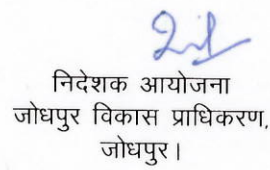 निदेशक आयोजना
जोधपुर विकास प्राधिकरण,
जोधपुर।